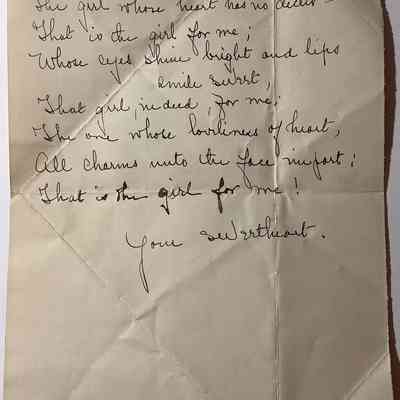 The girl whose heart has no deceit —
That is the girl for me;
Whose eyes shine bright and lips
smile sweet,
That girl, indeed, for me;
The one whose loveliness of heart,
All charms unto the face impart;
That is the girl for me!
Your Sweetheart.